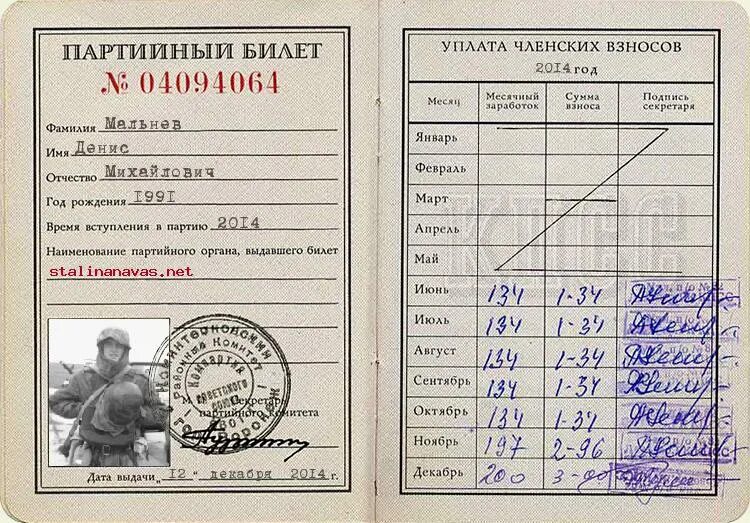 ПАРТИЙНЫЙ БИЛЕТ
№ 04094064
Фамилия Мальнев
Имя Денис
Отчество Михайлович
Год рождения 1991
Время вступления в партию 2014
Наименование партийного органа, выдавшего билет
stalinanavas.net
Коминтерновский
Районный Комитет
Компартия
Советского
Союза
М П Секретарь
партийного комитета
Дата выдачи „12" декабря 2014 г.
УПЛАТА ЧЛЕНСКИХ ВЗНОСОВ
2014 год
Месяц Месячный заработок Сумма взноса Подпись секретаря
Январь
Февраль
Март
Апрель
Май
КПСС
Июнь 134 1-34
Июль 134 1-34
Август 134 1-34
Сентябрь 134 1-34
Октябрь 134 1-34
Ноябрь 197 2-96
Декабрь 200